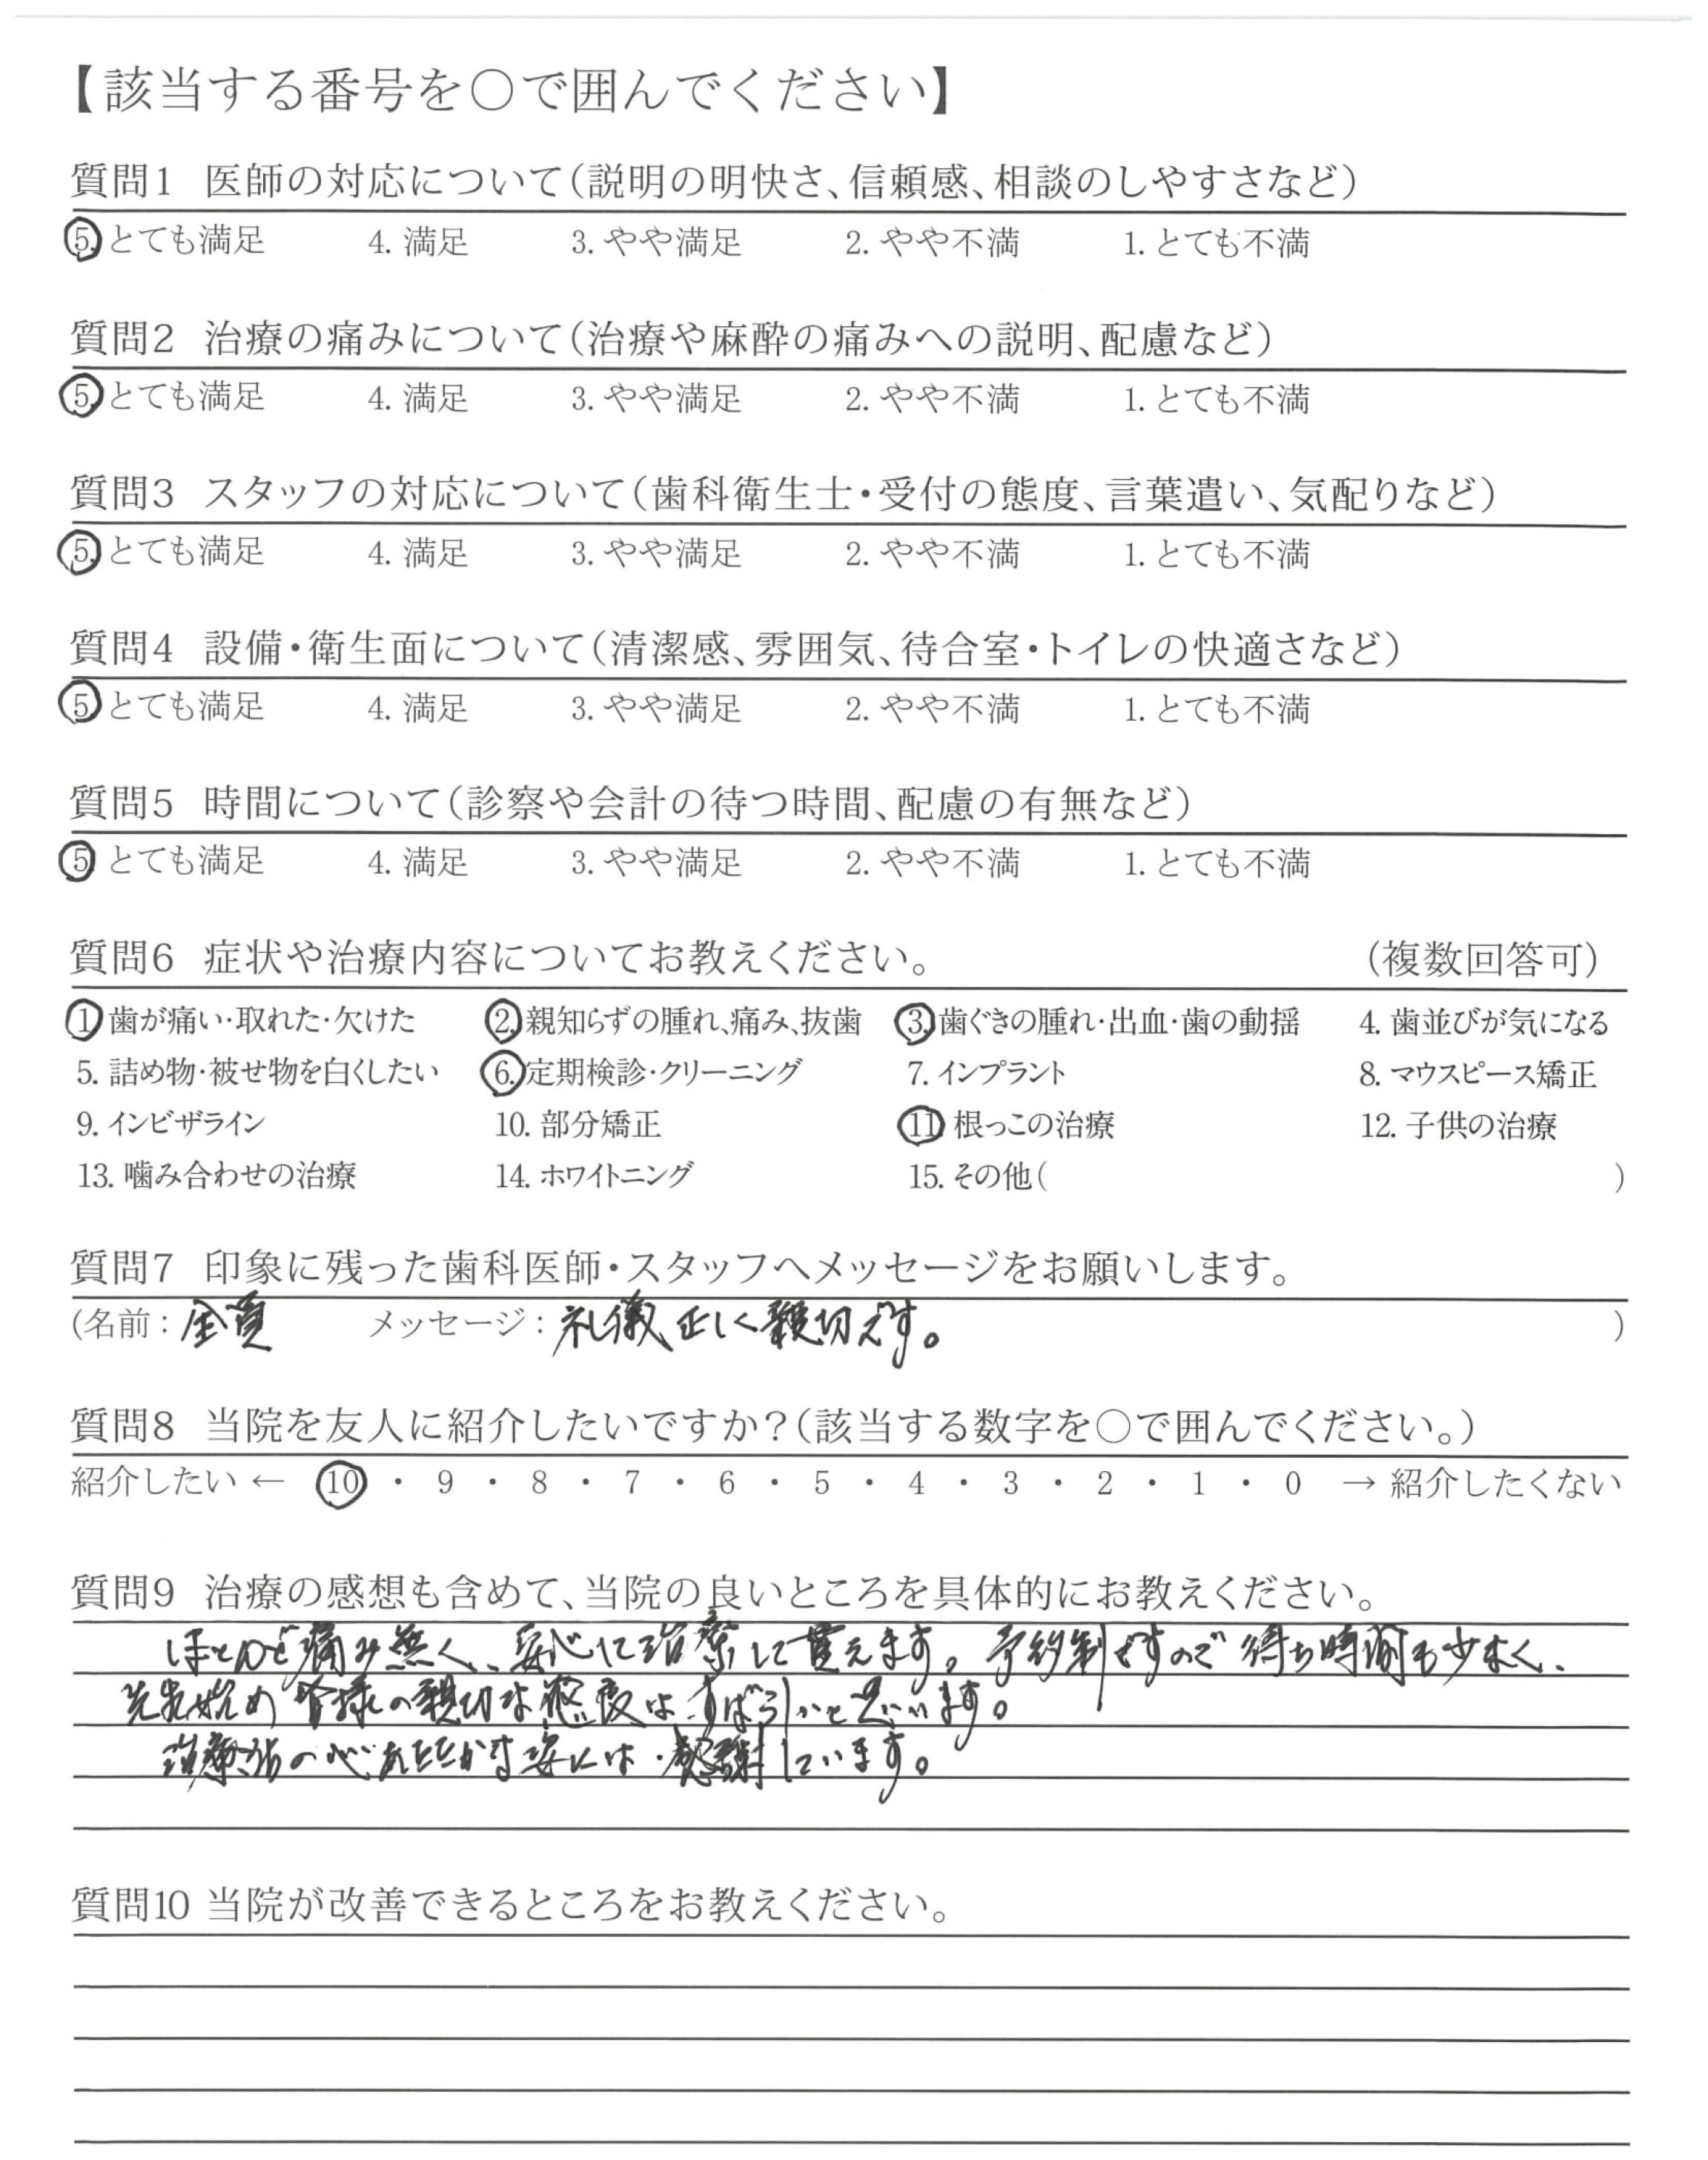 【該当する番号を○で囲んでください】
質問1 医師の対応について(説明の明快さ、信頼感、相談のしやすさなど)
5. とても満足 4. 満足 3. やや満足 2. やや不満 1. とても不満
質問2 治療の痛みについて(治療や麻酔の痛みへの説明、配慮など)
5. とても満足 4. 満足 3. やや満足 2. やや不満 1. とても不満
質問3 スタッフの対応について(歯科衛生士・受付の態度、言葉遣い、気配りなど)
5. とても満足 4. 満足 3. やや満足 2. やや不満 1. とても不満
質問4 設備・衛生面について(清潔感、雰囲気、待合室・トイレの快適さなど)
5 とても満足 4. 満足 3. やや満足 2. やや不満 1. とても不満
質問5 時間について(診察や会計の待つ時間、配慮の有無など)
5 とても満足 4. 満足 3. やや満足 2. やや不満 1. とても不満
質問6 症状や治療内容についてお教えください。 (複数回答可)
1 歯が痛い・取れた・欠けた 2. 親知らずの腫れ、痛み、抜歯 3. 歯ぐきの腫れ・出血・歯の動揺 4. 歯並びが気になる
5. 詰め物・被せ物を白くしたい 6. 定期検診・クリーニング 7. インプラント 8. マウスピース矯正
9. インビザライン 10. 部分矯正 11 根っこの治療 12. 子供の治療
13. 噛み合わせの治療 14. ホワイトニング 15. その他( )
質問7 印象に残った歯科医師・スタッフへメッセージをお願いします。
(名前: 全員 メッセージ: 礼儀正しく親切です。 )
質問8 当院を友人に紹介したいですか?(該当する数字を○で囲んでください。)
紹介したい ← 10 ・ 9 ・ 8 ・ 7 ・ 6 ・ 5 ・ 4 ・ 3 ・ 2 ・ 1 ・ 0 → 紹介したくない
質問9 治療の感想も含めて、当院の良いところを具体的にお教えください。
ほとんど痛み無く、安心に治療して貰えます。予約制ですので待ち時間も少なく、
先生始め皆様の親切な態度はすばらしいと思います。
の心あたたかな姿には、感謝しています。
質問10 当院が改善できるところをお教えください。